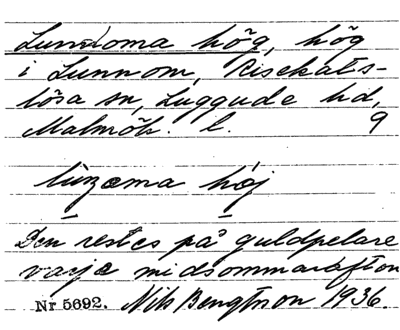 Lunnoma hög, hög
i Lunnom, Risekats-
lösa sn, Luggude hd,
Malmöh. l. 9
hög
Den restes på guldpelare
varje midsommarafton
Nr 5692. Nils Bengtsson 1936.